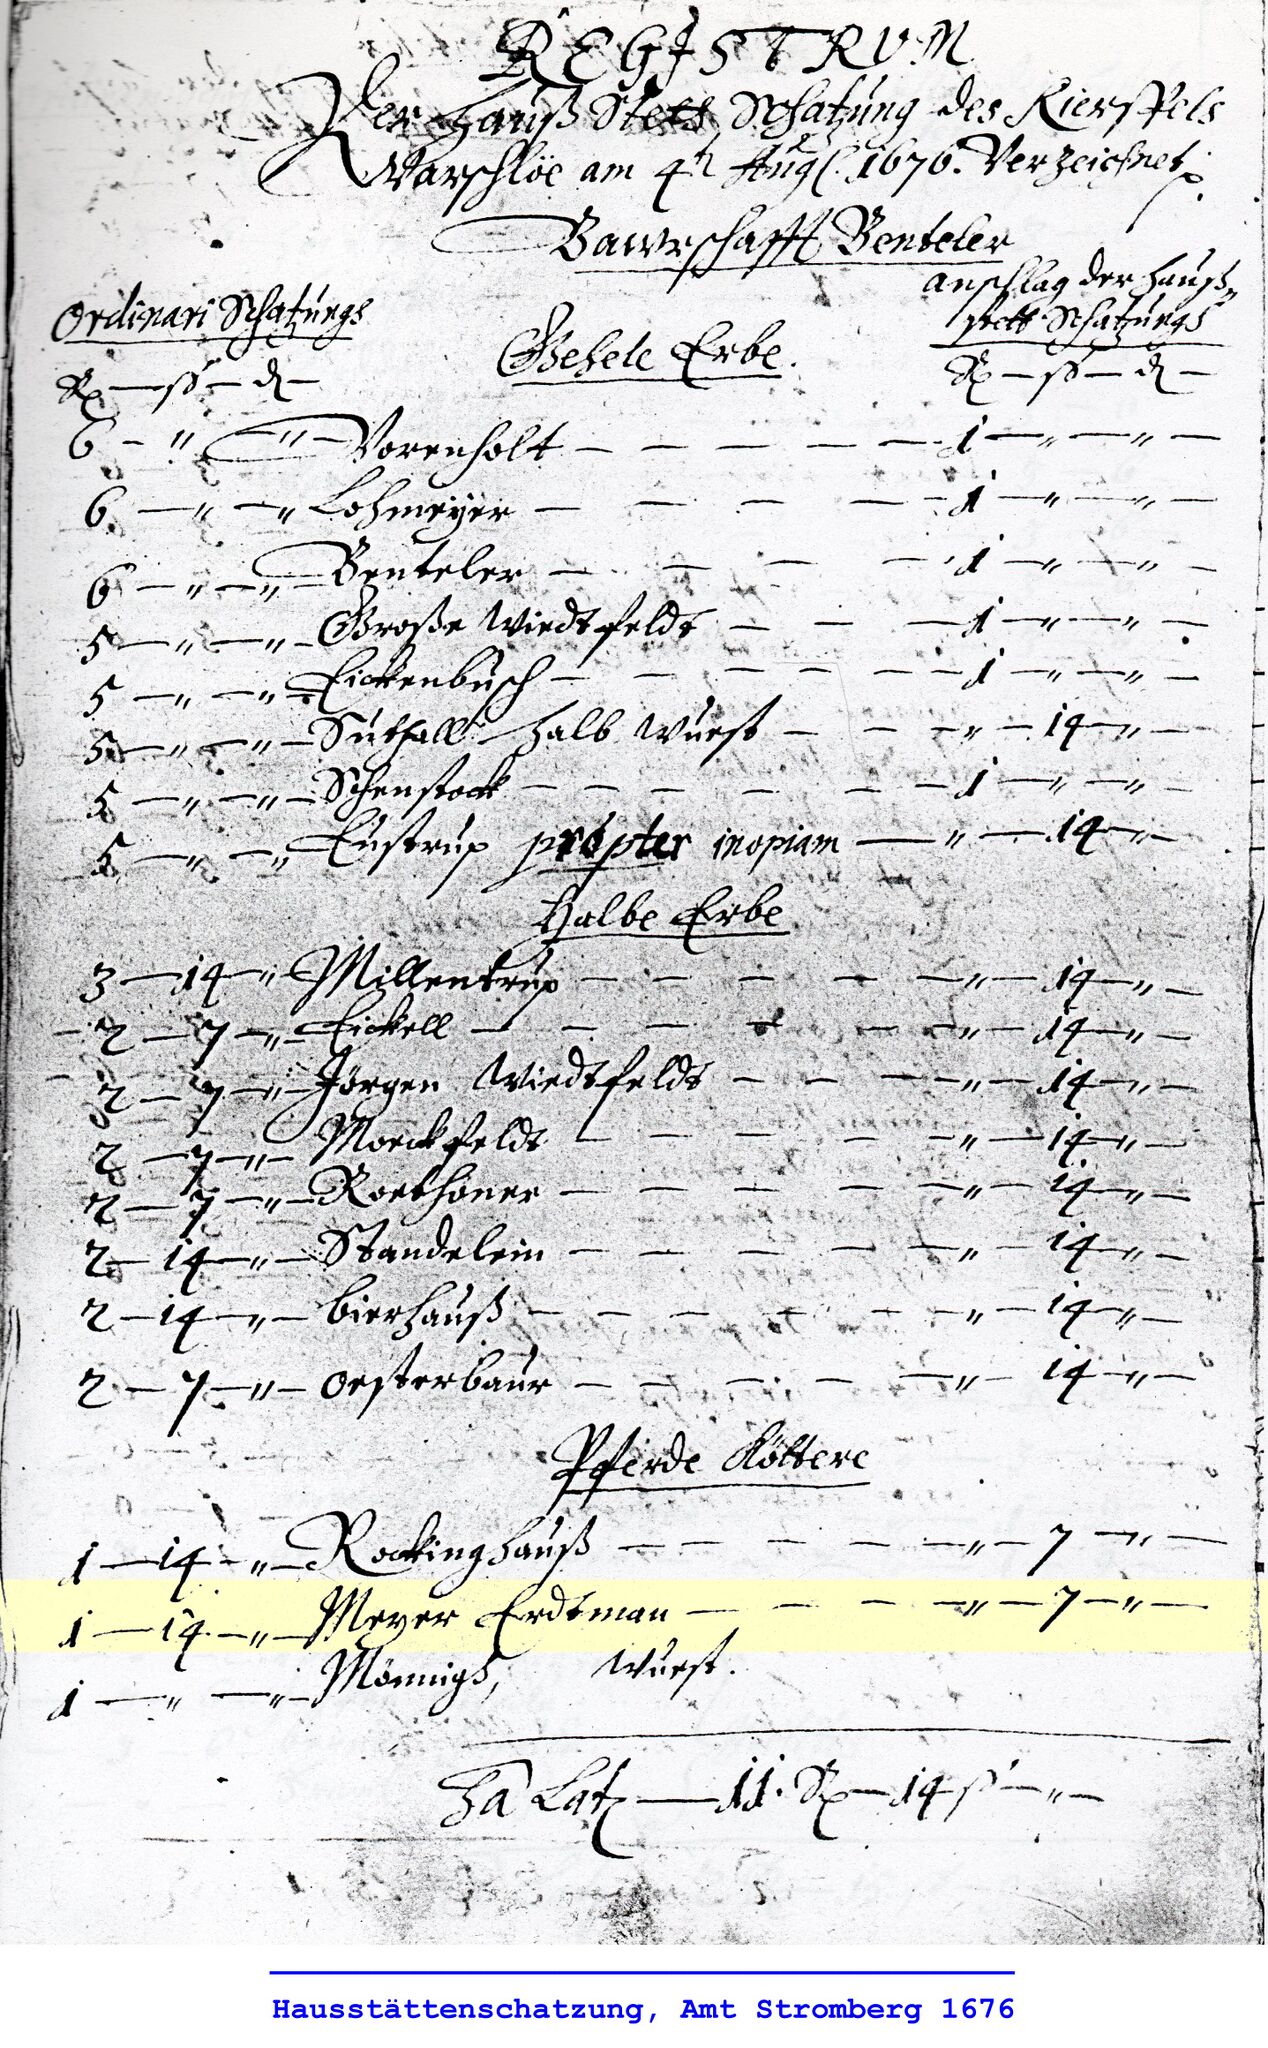 REGISTRUM
Der Hauß Stets Schatzung des Kierspels
Warschlöe am 4t Aug. 1676. Verzeichnet
Bawrschafft Benteler
Ordinari Schatzungs
anschlag der Hauß„
stett Schatzungs
Gehele Erbe.
Rx — ß — d —
Rx — ß — d —
6 — „ — „ — Vorenholt — — — — — 1 — „ — „ —
6 — „ — „ Lohmeyer — — — — — 1 — „ — „ —
6 — „ — „ — Benteler — — — — 1 — „ — „ —
5 — „ — „ — Große Wiedtsfeldt — — — 1 — „ — „ —
5 — „ — „ — Eickenbusch — — — — — 1 — „ — „ —
5 — „ — „ — Suthall halb wuest — — — „ — 14 — „ —
5 — „ — „ — Schenstock — — — — — — 1 — „ — „ —
5 — „ — „ Eustrup propter inopiam — „ — 14 — „ —
Halbe Erbe
3 — 14 — „ Millentrup — — — — — „ — 14 — „ —
2 — 7 — „ — Eickell — — — — — — „ — 14 — „ —
2 — 7 — „ — Jörgen Wiedtsfeldt — — — — „ — 14 — „ —
2 — 7 — „ — Moeckfeldt — — — — — „ — 14 — „ —
2 — 7 — „ — Roethöner — — — — — „ — 14 — „ —
2 — 14 — „ — Standelein — — — — — „ — 14 — „ —
2 — 14 — „ — bierhauß — — — — — — „ — 14 — „ —
2 — 7 — „ — oesterbaur — — — — — „ — 14 — „ —
PferdeKöttere
1 — 14 — „ — Rockinghauß — — — — — „ — 7 — „ —
1 — 14 — „ — Meyer Erdtman — — — — „ — 7 — „ —
1 — „ — „ — Mönnigs, wuest.
Latz — 11. Rx — 14 ß — „ —
Hausstättenschatzung, Amt Stromberg 1676